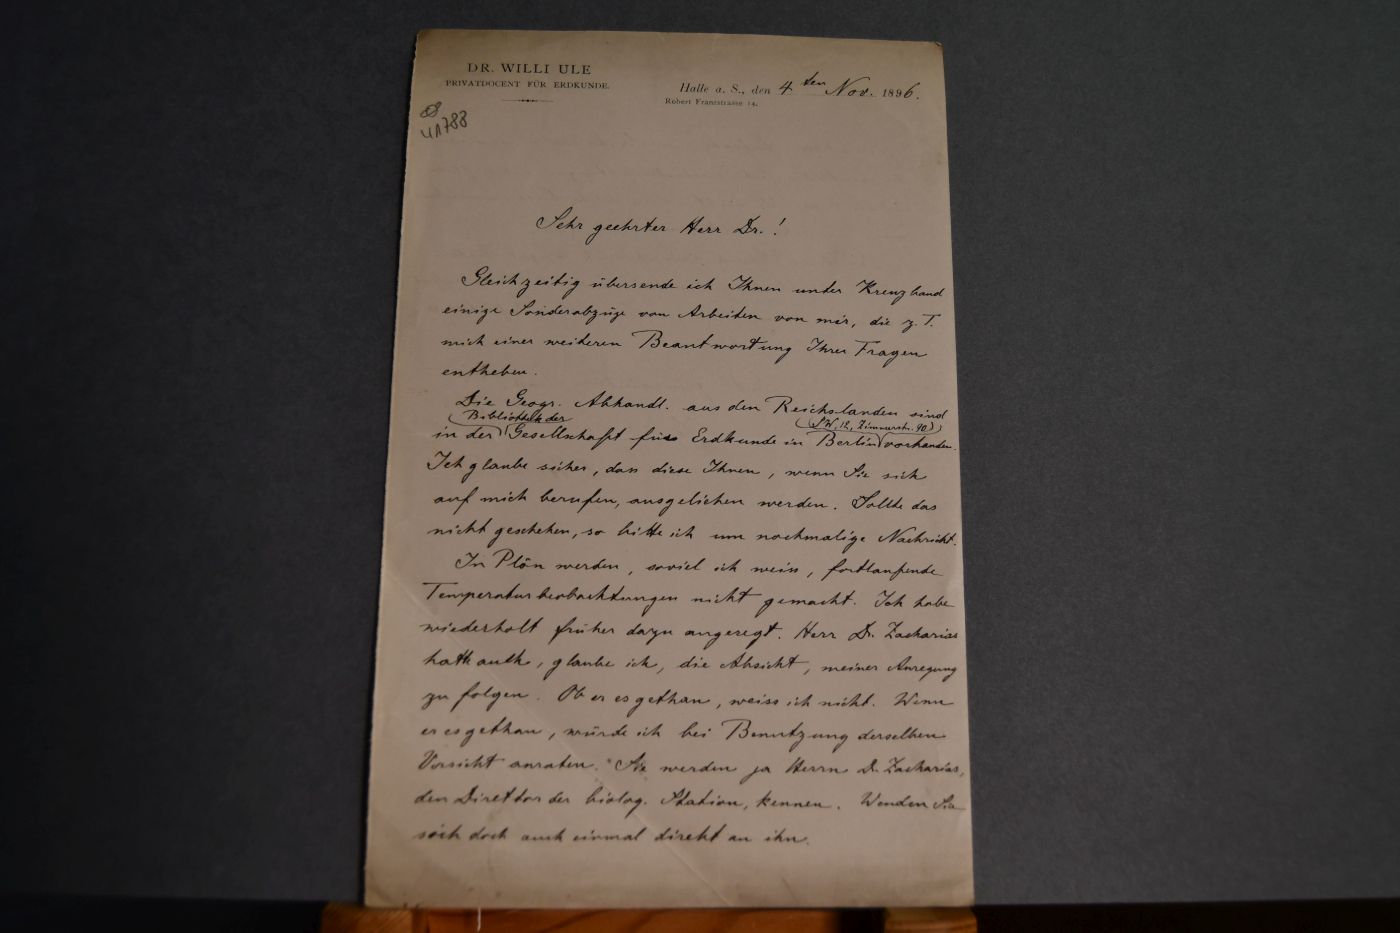 DR. WILLI ULE
PRIVATDOCENT FÜR ERDKUNDE.
Halle a. S., den 4ten Nov. 1896.
Robert Franzstrasse 14.
41788
Sehr geehrter Herr Dr.!
Gleichzeitig übersende ich Ihnen unter Kreuzband
einige Sonderabzüge von Arbeiten von mir, die z. T.
mich einer weiteren Beantwortung Ihrer Fragen
entheben.
Die Geogr. Abhandl. aus den Reichslanden sind
(Bibliothek der (SW, 12, Zimmerstr. 90)
in der Gesellschaft für Erdkunde in Berlin vorhanden.
Ich glaube sicher, dass diese Ihnen, wenn Sie sich
auf mich berufen, ausgeliehen werden. Sollte das
nicht geschehen, so bitte ich um nochmalige Nachricht.
In Plön werden, soviel ich weiss, fortlaufende
Temperaturbeobachtungen nicht gemacht. Ich habe
wiederholt früher dazu angeregt. Herr Dr. Zacharias
hatte auch, glaube ich, die Absicht, meiner Anregung
zu folgen. Ob er es gethan, weiss ich nicht. Wenn
er es gethan, würde ich bei Benutzung derselben
Vorsicht anraten. Sie werden ja Herrn Dr. Zacharias,
den Direktor der biolog. Station, kennen. Wenden Sie
sich doch auch einmal direkt an ihn.